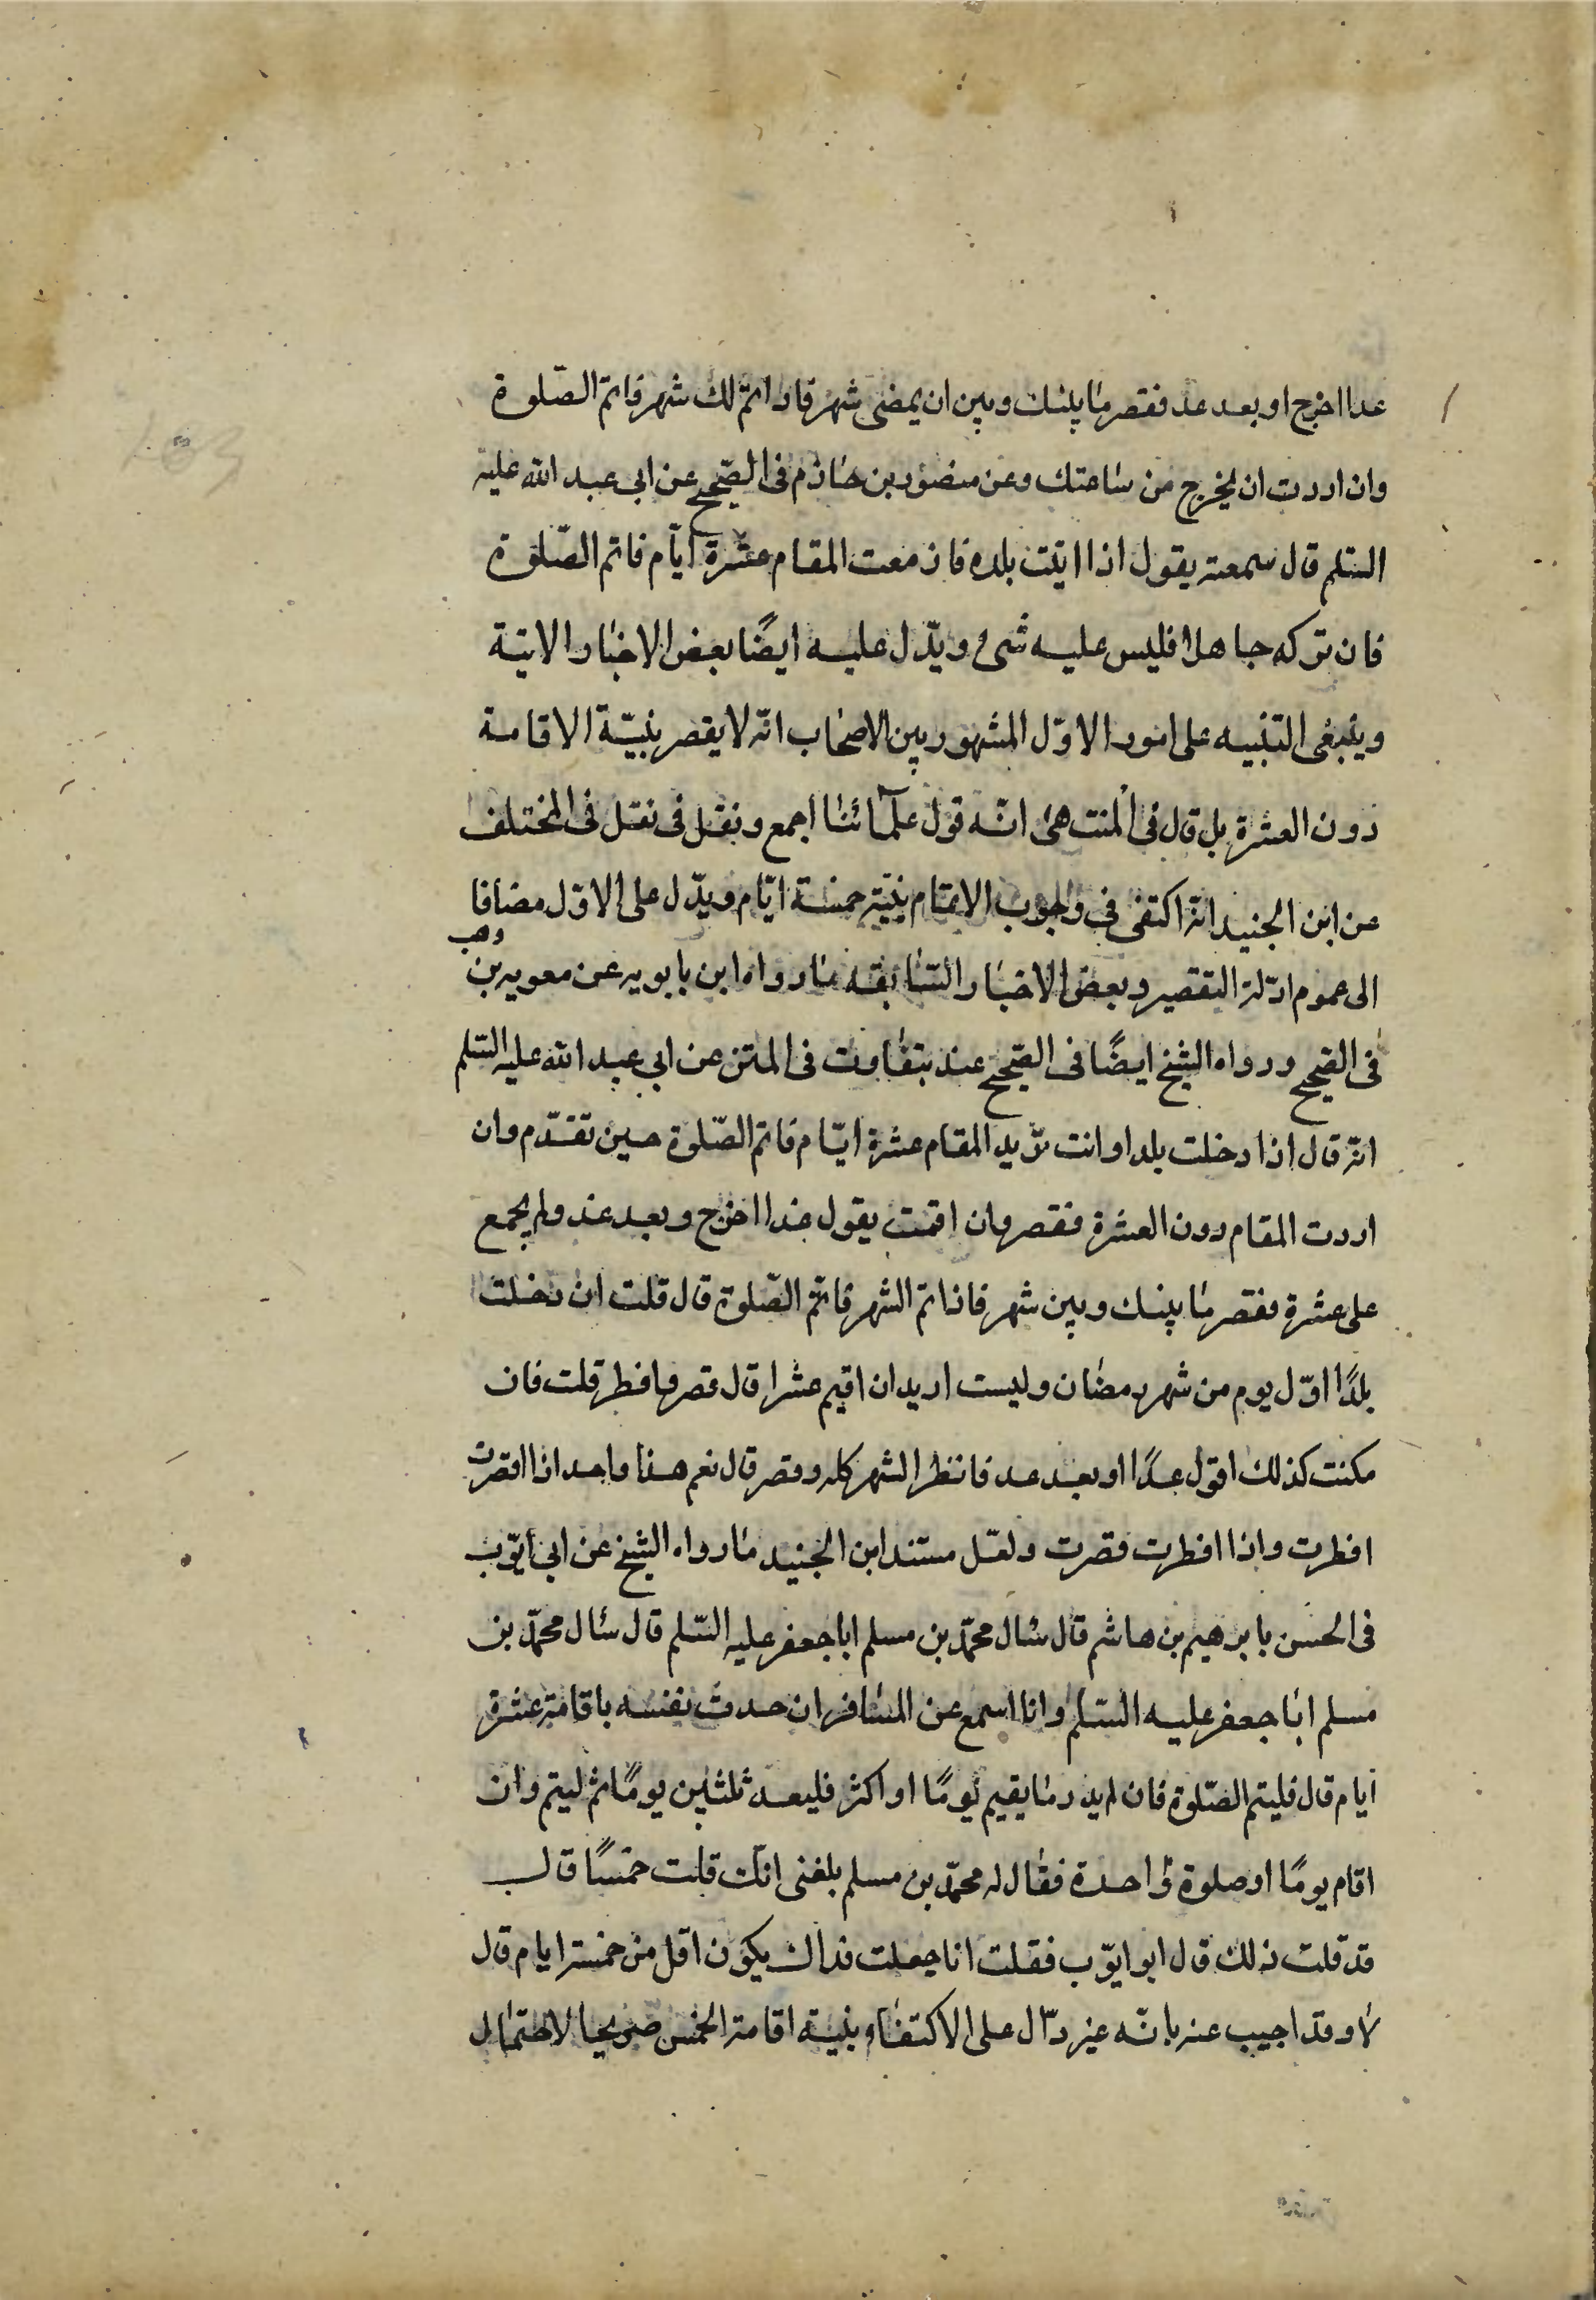 غدا اخرج او بعد غد فقصر ما بينك وبين ان يمضى شهر فاذا تمّ لك شهر فاتمّ الصّلوة
وان اردت ان يخرج من ساعتك وعن منصور بن حازم فى الصّحيح عن ابى عبد الله عليه
السّلم قال سمعته يقول اذا اتيت بلده فازمعت المقام عشرة ايّام فاتم الصّلوة
فان تركه جاهلا فليس عليه شىء ويدّل عليه ايضًا بعض الاخبار الاتية
وينبغى التنبيه على امور الاوّل المشهور بين الاصحاب انّه لا يقصر بنيّة الاقامة
دون العشرة بل قال فى المنتهى انّه قول علمآئنا اجمع ونقل فى نقل فى المختلف
عن ابن الجنيد انّه اكتفى فى وجوب الاتمام بنيّة خمسة ايّام ويدّل على الاوّل مضافا
الى عموم ادّلة التقصير وبعض الاخبار السّابقه ما رواه ابن بابويه عن معويه بن وهب
فى الصّحيح ورواه الشيخ ايضًا فى الصّحيح عنه بتفاوت فى المتن عن ابي عبد الله عليه السّلم
انّه قال اذا دخلت بلدا وانت تريد المقام عشرة ايّام فاتم الصّلوة حين تقدّم وان
اردت المقام دون العشرة فقصر وان اقمت يقول غدا اخرج وبعد غد ولم يجمع
على عشرة فقصر ما بينك وبين شهر فاذا تم الشهر فاتمّ الصّلوة قال قلت ان دخلت
بلدًا اوّل يوم من شهر رمضان وليست اريد ان اقيم عشرا قال قصر وافطر قلت فان
مكنت كذلك اقول غدًا او بعد غد فانظر الشهر كله وقصر قال نعم هذا واحد اذا اقصرت
افطرت واذا افطرت قصرت ولعّل مستند ابن الجنيد ما رواه الشيخ عن ابى ايّوب
فى الحسن بابرهيم بن هاشم قال سئال محمّد بن مسلم ابا جعفر عليه السّلم قال سئال محمّد بن
مسلم ابا جعفر عليه السّلم وانا اسمع عن المسافر ان حدث نفسه باقامة عشرة
ايام قال فليتم الصّلوة فان لم يدر ما يقيم يومًا او اكثر فليعد ثلثين يومًا ثم ليتم وان
اقام يومًا او صلوة واحدة فقال له محمّد بن مسلم بلغنى انّك قلت خمسًا قال
قد قلت ذلك قال ابو ايّوب فقلت انا جعلت فداك يكون اقل من خمسة ايام قال
لا وقد اجيب عنه بانّه غير دّال على الاكتفاء بنية اقامة الخمس صريحا لاحتمال